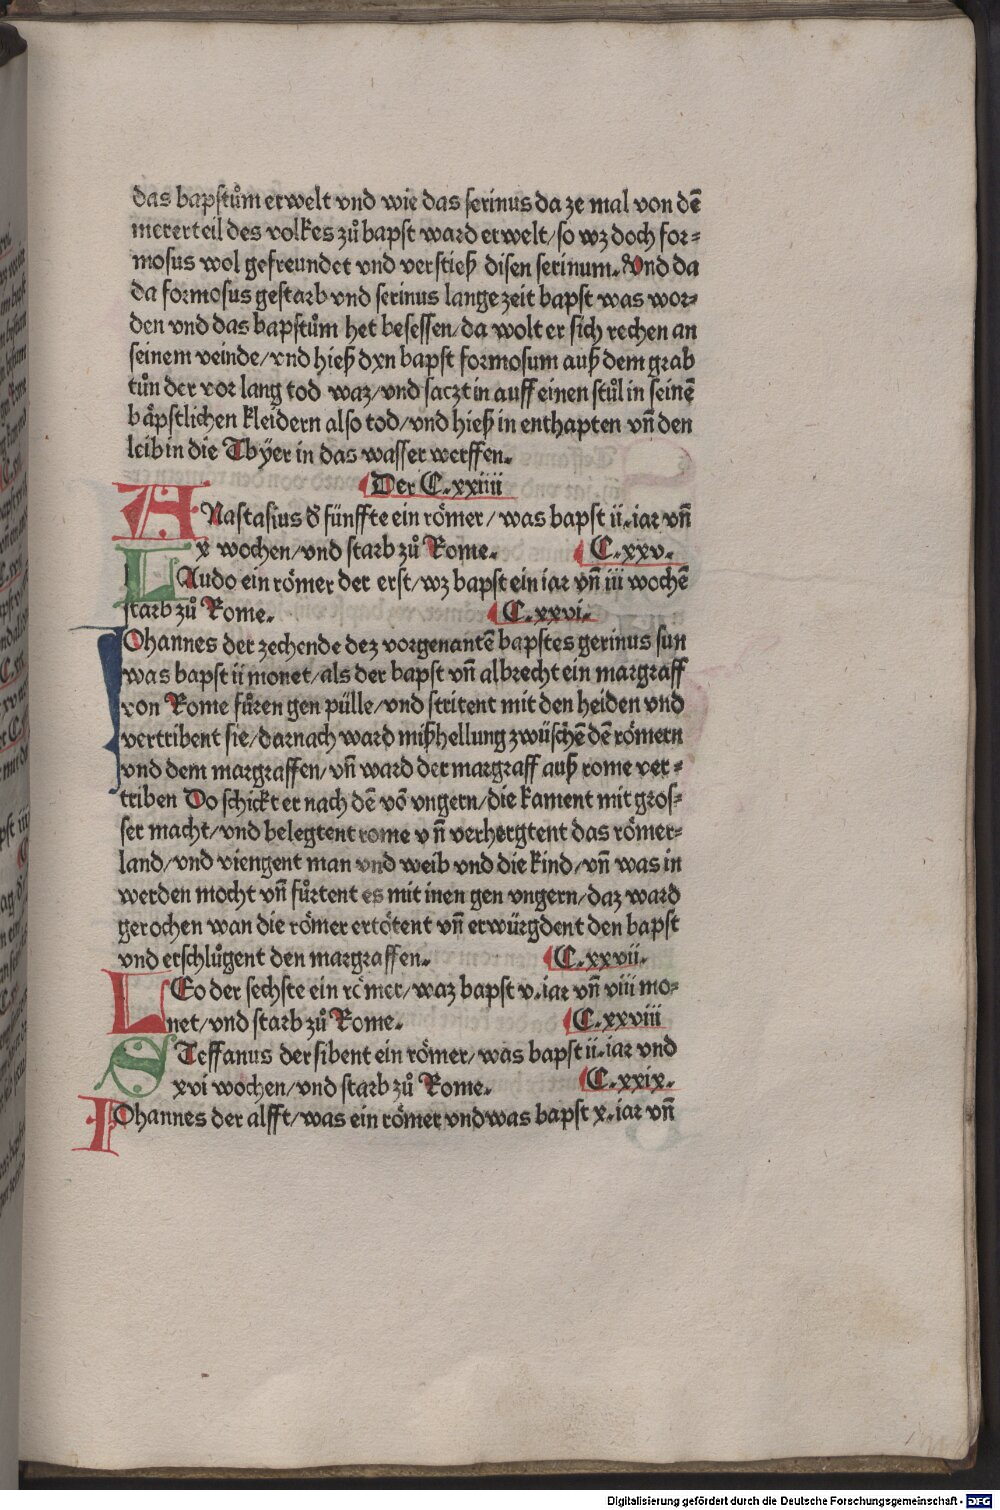 das bapstuͦm erwelt vnd wie das serinus da ze mal von dē
merer teil des volkes zuͦ bapst ward erwelt/so wz doch for⸗
mosus wol gefreundet vnd verstieß disen serinum. Vnd da
da formosus gestarb vnd serinus lange zeit bapst was wor⸗
den vnd das bapstuͦm het besessen/da wolt er sich rechen an
seinem veinde/vnd hieß dxn bapst formosum auß dem grab
tuͦn der vor lang tod waz/vnd saczt in auff einen stuͦl in seinē
bäpstlichen kleidern also tod/vnd hieß in enthapten vn̄ den
leib in die Tbÿer in das wasser werffen.
Der C.xxiiii
ANastasius d̕ fünffte ein römer/was bapst ii.iar vn̄
x wochen/vnd starb zuͦ Rome. C.xxv.
LAudo ein römer der erst/wz bapst ein iar vn̄ iii wochē
starb zuͦ Rome. C.xxvi.
IOhannes der zechende dez vorgenantē bapstes gerinus sun
was bapst ii monet/als der bapst vn̄ albrecht ein margraff
von Rome fuͦren gen pülle/vnd stritent mit den heiden vnd
vertribent sie/darnach ward mißhellung zwüschē dē römern
vnd dem margraffen/vn̄ ward der margraff auß rome ver⸗
triben Do schickt er nach dē vō vngern/die kament mit gros⸗
ser macht/vnd belegtent rome vn̄ verhergtent das römer⸗
land/vnd viengent man vnd weib vnd die kind/vn̄ was in
werden mocht vn̄ fuͦrtent es mit inen gen vngern/daz ward
gerochen wan die römer ertötent vn̄ erwürgdent den bapst
vnd erschluͦgent den margraffen. C.xxvii.
LEo der sechste ein römer/waz bapst v.iar vn̄ viii mo⸗
net/vnd starb zuͦ Rome. C.xxviii
STeffanus der sibent ein römer/was bapst ii.iar vnd
xvi wochen/vnd starb zuͦ Rome. C.xxix.
IOhannes der alfft/was ein römer vnd was bapst x.iar vn̄
Digitalisierung gefördert durch die Deutsche Forschungsgemeinschaft - DFG